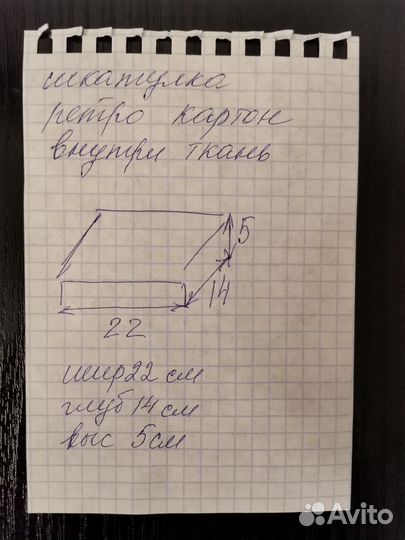 шкатулка
ретро картон
внутри ткань
5
14
22
шир 22 см
глуб 14 см
выс 5см
Avito